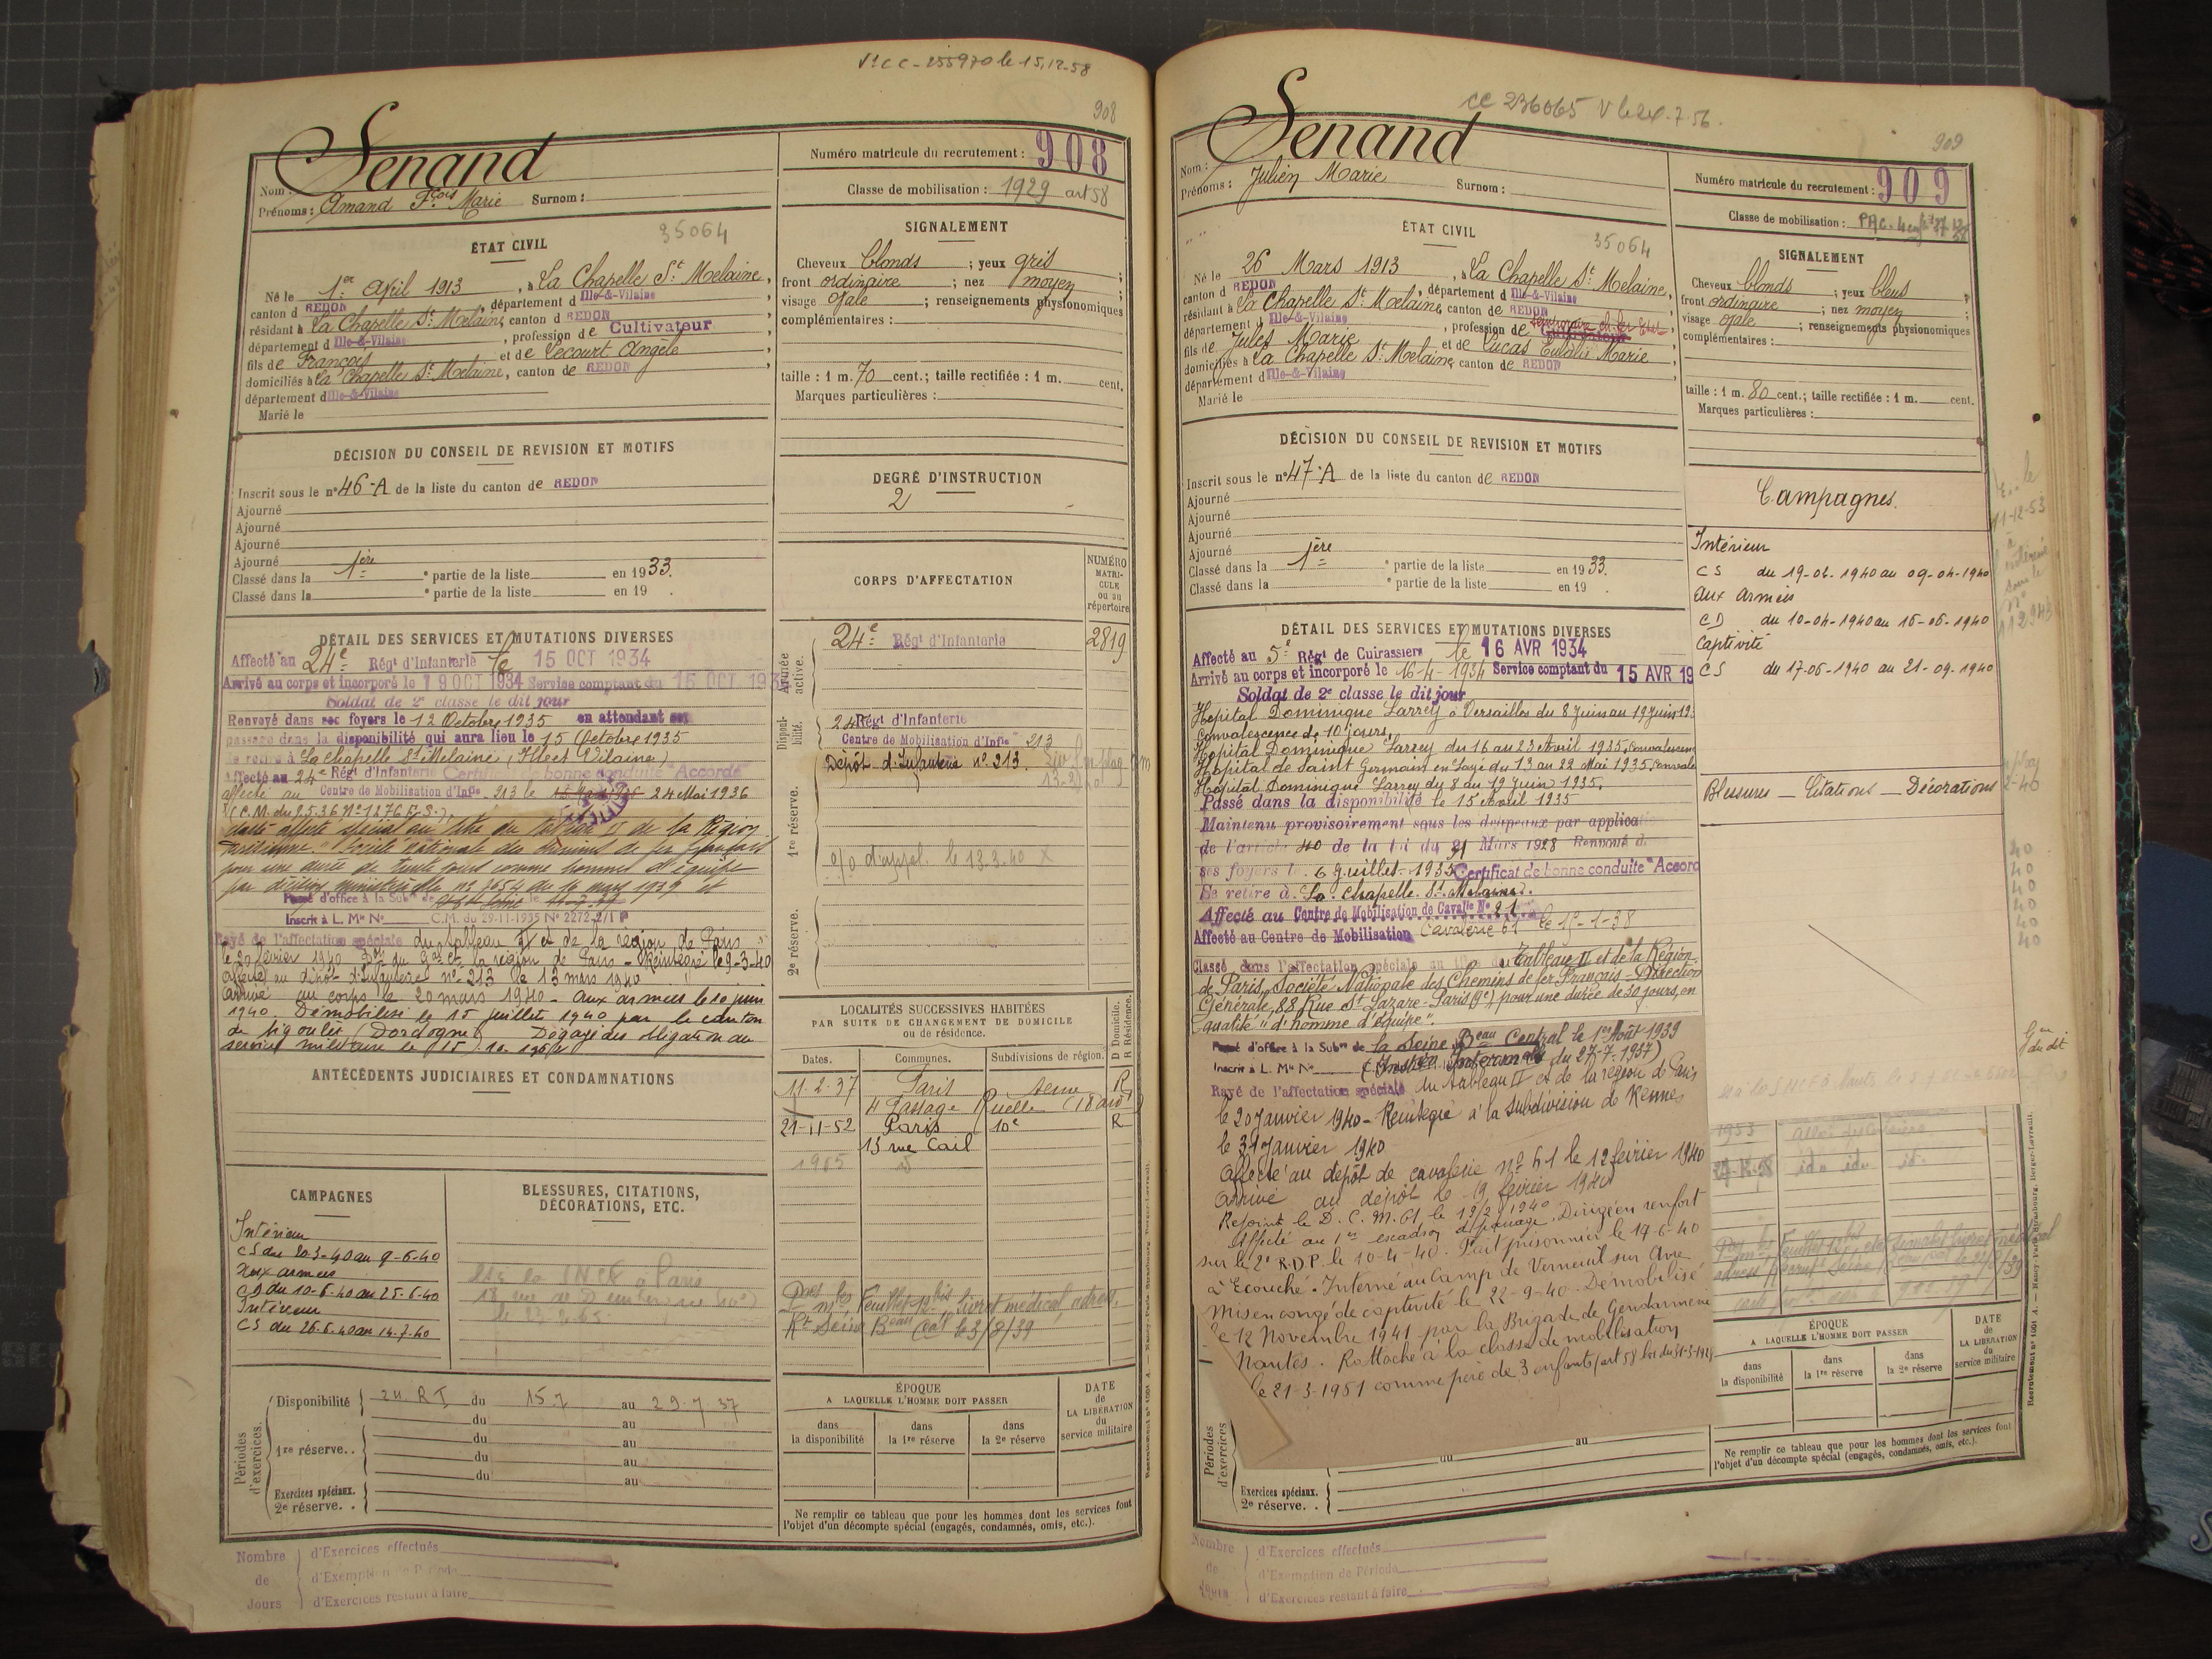 Vu CC - 255970 le 15.12.58
908
Senand
Nom :
Prénoms : Amand Fçois Marie Surnom :
Numéro matricule du recrutement : 908
Classe de mobilisation : 1929 art 58
ÉTAT CIVIL
35064
Né le 1er Avril 1913, à La Chapelle St Melaine,
canton d REDON, département d Ille-&-Vilaine
résidant à La Chapelle St Melaine, canton d REDON
département d Ille-&-Vilaine, profession de Cultivateur
fils de François et de Lecourt Angèle
domiciliés à La Chapelle St Melaine, canton de REDON
département d Ille-&-Vilaine
Marié le
SIGNALEMENT
Cheveux blonds ; yeux gris ;
front ordinaire ; nez moyen ;
visage ovale ; renseignements physionomiques
complémentaires :
taille : 1 m. 70 cent.; taille rectifiée : 1 m. cent.
Marques particulières :
DÉCISION DU CONSEIL DE REVISION ET MOTIFS
Inscrit sous le n° 46-A de la liste du canton de REDON
Ajourné
Ajourné
Ajourné
Ajourné
Classé dans la 1ère partie de la liste en 1933.
Classé dans la e partie de la liste en 19 .
DEGRÉ D'INSTRUCTION
2
DÉTAIL DES SERVICES ET MUTATIONS DIVERSES
Affecté au 24e Régt d'Infanterie le 15 OCT 1934
Arrivé au corps et incorporé le 19 OCT 1934 Service comptant du 15 OCT 193
Soldat de 2e classe le dit jour
Renvoyé dans ses foyers le 12 Octobre 1935 en attendant son
passage dans la disponibilité qui aura lieu le 15 Octobre 1935
Se retire à La Chapelle St Melaine (Ille et Vilaine)
Affecté au 24e Régt d'Infanterie Certificat de bonne conduite "Accordé"
affecté au Centre de Mobilisation d'Infie 213 le 24 Mai 1936
(C.M. du 2.5.36 N° 1276 Er S.)
Classé affecté spécial au titre du tableau II de la Région
parisienne. "Société nationale des chemins de fer français"
pour une durée de trente jours comme homme d'équipe
par décision ministérielle n° 7654 du 10 mars 1939 et
Passé d'office à la Subon de
Inscrit à L. Me No C.M. du 29-11-1935 N° 2272.2/1 P
Rayé de l'affectation spéciale du tableau II et de la région de Paris
le 20 février 1940 - Réintégré le 9-3-40
Affecté au dépôt d'infanterie n° 213 le 13 mars 1940
Arrivé au corps le 20 mars 1940 - aux armées le 10 juin
1940. Démobilisé le 15 juillet 1940 par le canton
de Sigoulès (Dordogne) Dégagé des obligations du
service militaire le 15.10.
CORPS D'AFFECTATION
NUMÉRO MATRICULE OU AU répertoire
Armée active.
24e Régt d'Infanterie 2819
Disponibilité.
24 Régt d'Infanterie
Centre de Mobilisation d'Infie 213
1re réserve.
Dépôt d'Infanterie n° 213.
o/o d'appel le 13-3-40 X
2e réserve.
ANTÉCÉDENTS JUDICIAIRES ET CONDAMNATIONS
LOCALITÉS SUCCESSIVES HABITÉES
PAR SUITE DE CHANGEMENT DE DOMICILE
ou de résidence.
D Domicile. R Résidence.
Dates. Communes. Subdivisions de région.
11-2-37 Paris Seine R
4 Passage Ruelle (18 arrt)
21-11-52 Paris 10e R
13 rue Cail
1965
CAMPAGNES
Intérieur
CS du 20-3-40 au 9-6-40
Aux armées
CD du 10-6-40 au 25-6-40
Intérieur
CS du 26-6-40 au 14-7-40
BLESSURES, CITATIONS,
DÉCORATIONS, ETC.
SNCF à Paris
Pces m. les Feuillet 12 bis livret médical, adress.
Rt Seine Beau Cal le 3/8/39
Périodes d'exercices.
Disponibilité 24 RI du 15.7 au 29.7.37
du au
1re réserve. . du au
du au
du au
Exercices spéciaux.
2e réserve. .
ÉPOQUE
A LAQUELLE L'HOMME DOIT PASSER
dans la disponibilité
dans la 1re réserve
dans la 2e réserve
DATE de LA LIBÉRATION du service militaire
Ne remplir ce tableau que pour les hommes dont les services font
l'objet d'un décompte spécial (engagés, condamnés, omis, etc.).
Nombre de Jours
d'Exercices effectués
d'Exemption de Période
d'Exercices restant à faire
CC 236065 V le 24.7.56.
909
Senand
Nom :
Prénoms : Julien Marie Surnom :
Numéro matricule du recrutement : 909
Classe de mobilisation :
ÉTAT CIVIL
35064
Né le 26 Mars 1913, à La Chapelle St Melaine,
canton d REDON, département d Ille-&-Vilaine
résidant à La Chapelle St Melaine, canton de REDON
département d Ille-&-Vilaine, profession de
fils de Jules Marie et de Lucas Eulalie Marie
domiciliés à La Chapelle St Melaine, canton de REDON
département d Ille-&-Vilaine
Marié le
SIGNALEMENT
Cheveux blonds ; yeux bleus ;
front ordinaire ; nez moyen ;
visage ovale ; renseignements physionomiques
complémentaires :
taille : 1 m. 80 cent.; taille rectifiée : 1 m. cent.
Marques particulières :
DÉCISION DU CONSEIL DE REVISION ET MOTIFS
Inscrit sous le n° 47-A de la liste du canton de REDON
Ajourné
Ajourné
Ajourné
Ajourné
Classé dans la 1ère partie de la liste en 1933.
Classé dans la e partie de la liste en 19 .
DÉTAIL DES SERVICES ET MUTATIONS DIVERSES
Affecté au 5e Régt de Cuirassiers le 16 AVR 1934
Arrivé au corps et incorporé le 16-4-1934 Service comptant du 15 AVR 19
Soldat de 2e classe le dit jour
Hôpital Dominique Larrey à Versailles du 8 Juin au 19 Juin 19
Convalescence de 10 jours.
Hôpital Dominique Larrey du 16 au 23 Avril 1935, Convalescen
Hôpital de Saint Germain en Laye du 13 au 22 Mai 1935, Convale
Hôpital Dominique Larrey du 8 au 19 Juin 1935.
Passé dans la disponibilité le 15 Avril 1935
Maintenu provisoirement sous les drapeaux par applicatio
de l'article 40 de la loi du 31 Mars 1928 Renvoyé d
ses foyers le 6 Juillet 1935 Certificat de bonne conduite "Accord
Se retire à La Chapelle St Melaine.
Affecté au Centre de Mobilisation de Cavalie N° 21
Affecté au Centre de Mobilisation Cavalerie 61 le 1er-1-38
Classé dans l'affectation spéciale au titre du Tableau II et de la Région
de Paris, Société Nationale des Chemins de fer Français - Direction
Générale, 88, Rue St Lazare - Paris (9e), pour une durée de 30 jours, en
qualité "d'homme d'équipe".
Passé d'office à la Subon de la Seine Beau Central le 1er Août 1939
Inscrit à L. Me No du 27-7-1937)
Rayé de l'affectation spéciale du tableau II et de la région de Paris
le 20 Janvier 1940 - Réintégré à la Subdivision de Rennes
le 31 Janvier 1940
Affecté au dépôt de cavalerie n° 61 le 12 février 1940
Arrivé au dépôt le 19 février 1940
Rejoint le D.C.M. 61 le 19/2/1940
Affecté au 1er escadron Dirigé en renfort
sur le 2e R.D.P. le 10-4-40. Fait prisonnier le 17-6-40
à Ecouché. Interné au Camp de Verneuil sur Avre
Mis en congé de captivité le 22-9-40. Démobilisé
le 12 Novembre 1941 par la Brigade de Gendarmerie
Nantes. Rattaché à la classe de mobilisation
le 21-3-1951 comme père de 3 enfants (art 58 loi du 31-3-1928
Campagnes.
Intérieur
CS du 19-02-1940 au 09-04-1940
aux Armées
CD du 10-04-1940 au 16-06-1940
Captivité
CS du 17-06-1940 au 21-09-1940
Blessures — Citations — Décorations
1953
Périodes d'exercices
du au
Exercices spéciaux.
2e réserve. .
ÉPOQUE
A LAQUELLE L'HOMME DOIT PASSER
dans la disponibilité
dans la 1re réserve
dans la 2e réserve
DATE de LA LIBÉRATION du service militaire
Ne remplir ce tableau que pour les hommes dont les services font
l'objet d'un décompte spécial (engagés, condamnés, omis, etc.).
Nombre de Jours
d'Exercices effectués
d'Exemption de Période
d'Exercices restant à faire